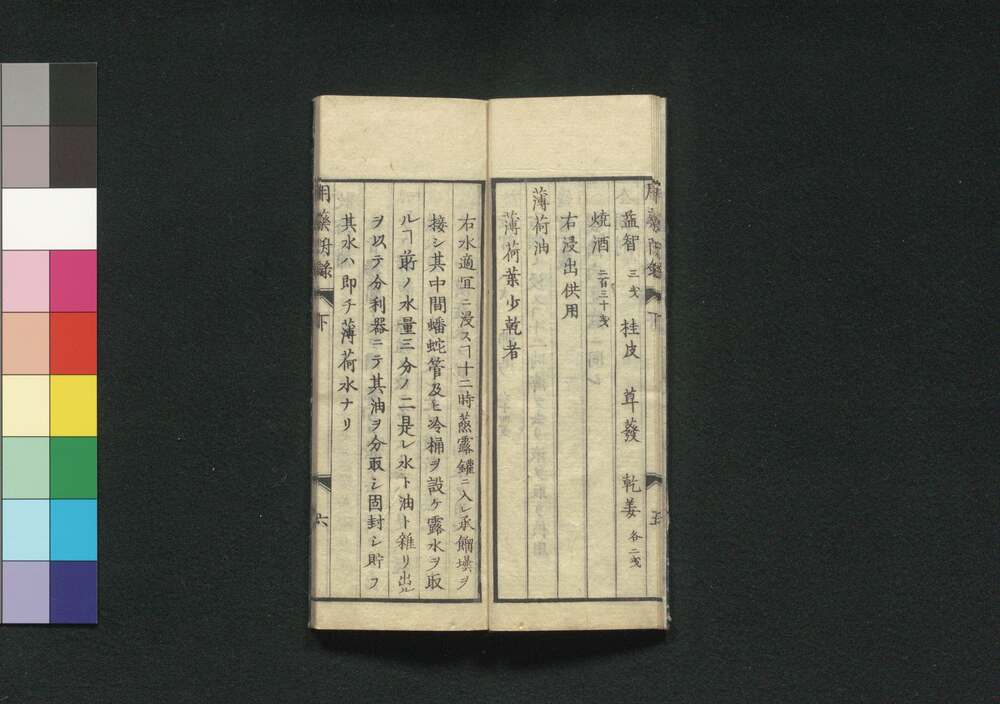 益智 三戔 桂皮 蓽茇 乾姜 各二戔
焼酒 二百三十戔
右浸出供用
薄荷油
薄荷葉少乾者
右水適冝ニ浸スヿ十二時蒸露鑵ニ入レ承餾壜ヲ
接シ其中間蟠蛇管及ヒ冷桶ヲ設ケ露水ヲ取
ルヿ前ノ水量三分ノ二是レ水ト油ト雜リ出ル
ヲ以テ分利器ニテ其油ヲ分取シ固封シ貯フ
其水ハ即チ薄荷水ナリ
用薬明録 下 六